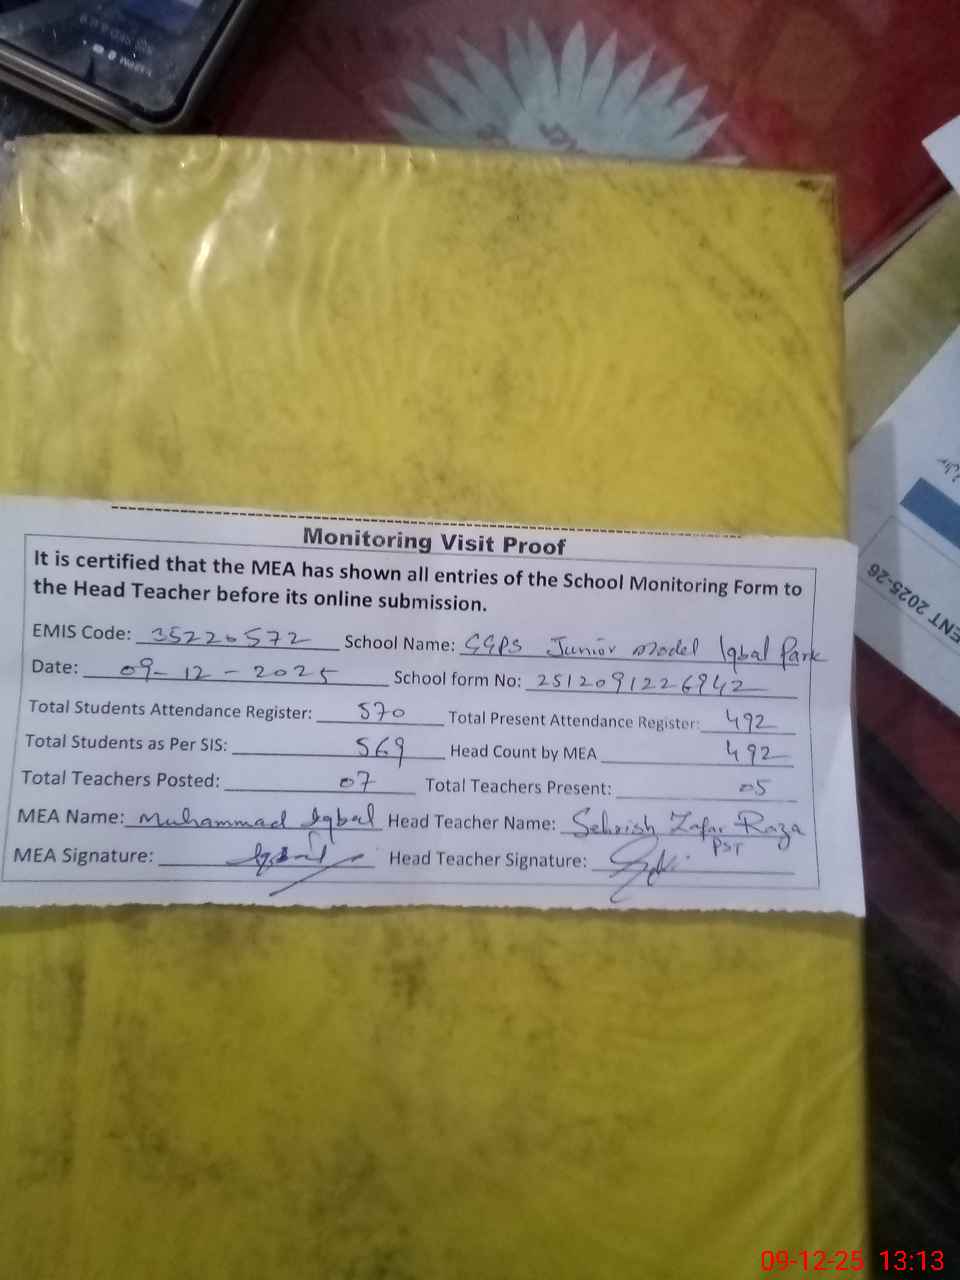 Monitoring Visit Proof
It is certified that the MEA has shown all entries of the School Monitoring Form to
the Head Teacher before its online submission.
EMIS Code: 35220572 School Name: GGPS Junior Model Iqbal Park
Date: 09-12-2025 School form No: 2512091226942
Total Students Attendance Register: 570 Total Present Attendance Register: 492
Total Students as Per SIS: 569 Head Count by MEA 492
Total Teachers Posted: 07 Total Teachers Present: 05
MEA Name: Muhammad Iqbal Head Teacher Name: Sehrish Zafar Raza
PST
MEA Signature: Head Teacher Signature:
ENT 2025-26
09-12-25 13:13